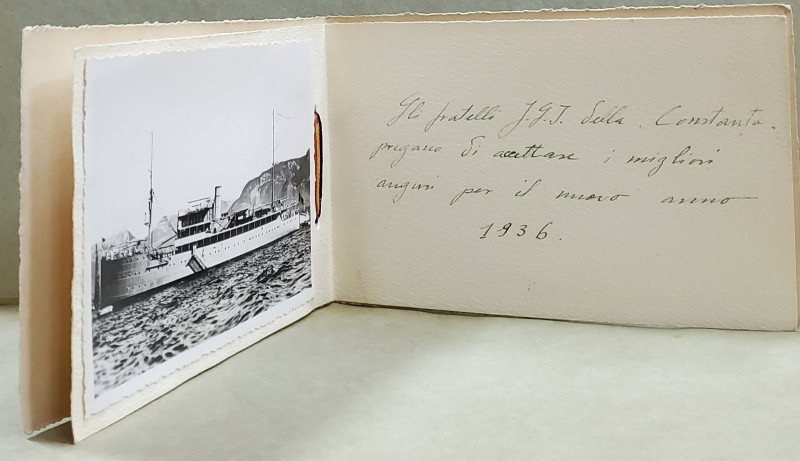 Gli fratelli J.G.J. della Constanta.
pregano di accettare i migliori
auguri per il nuovo anno
1936.